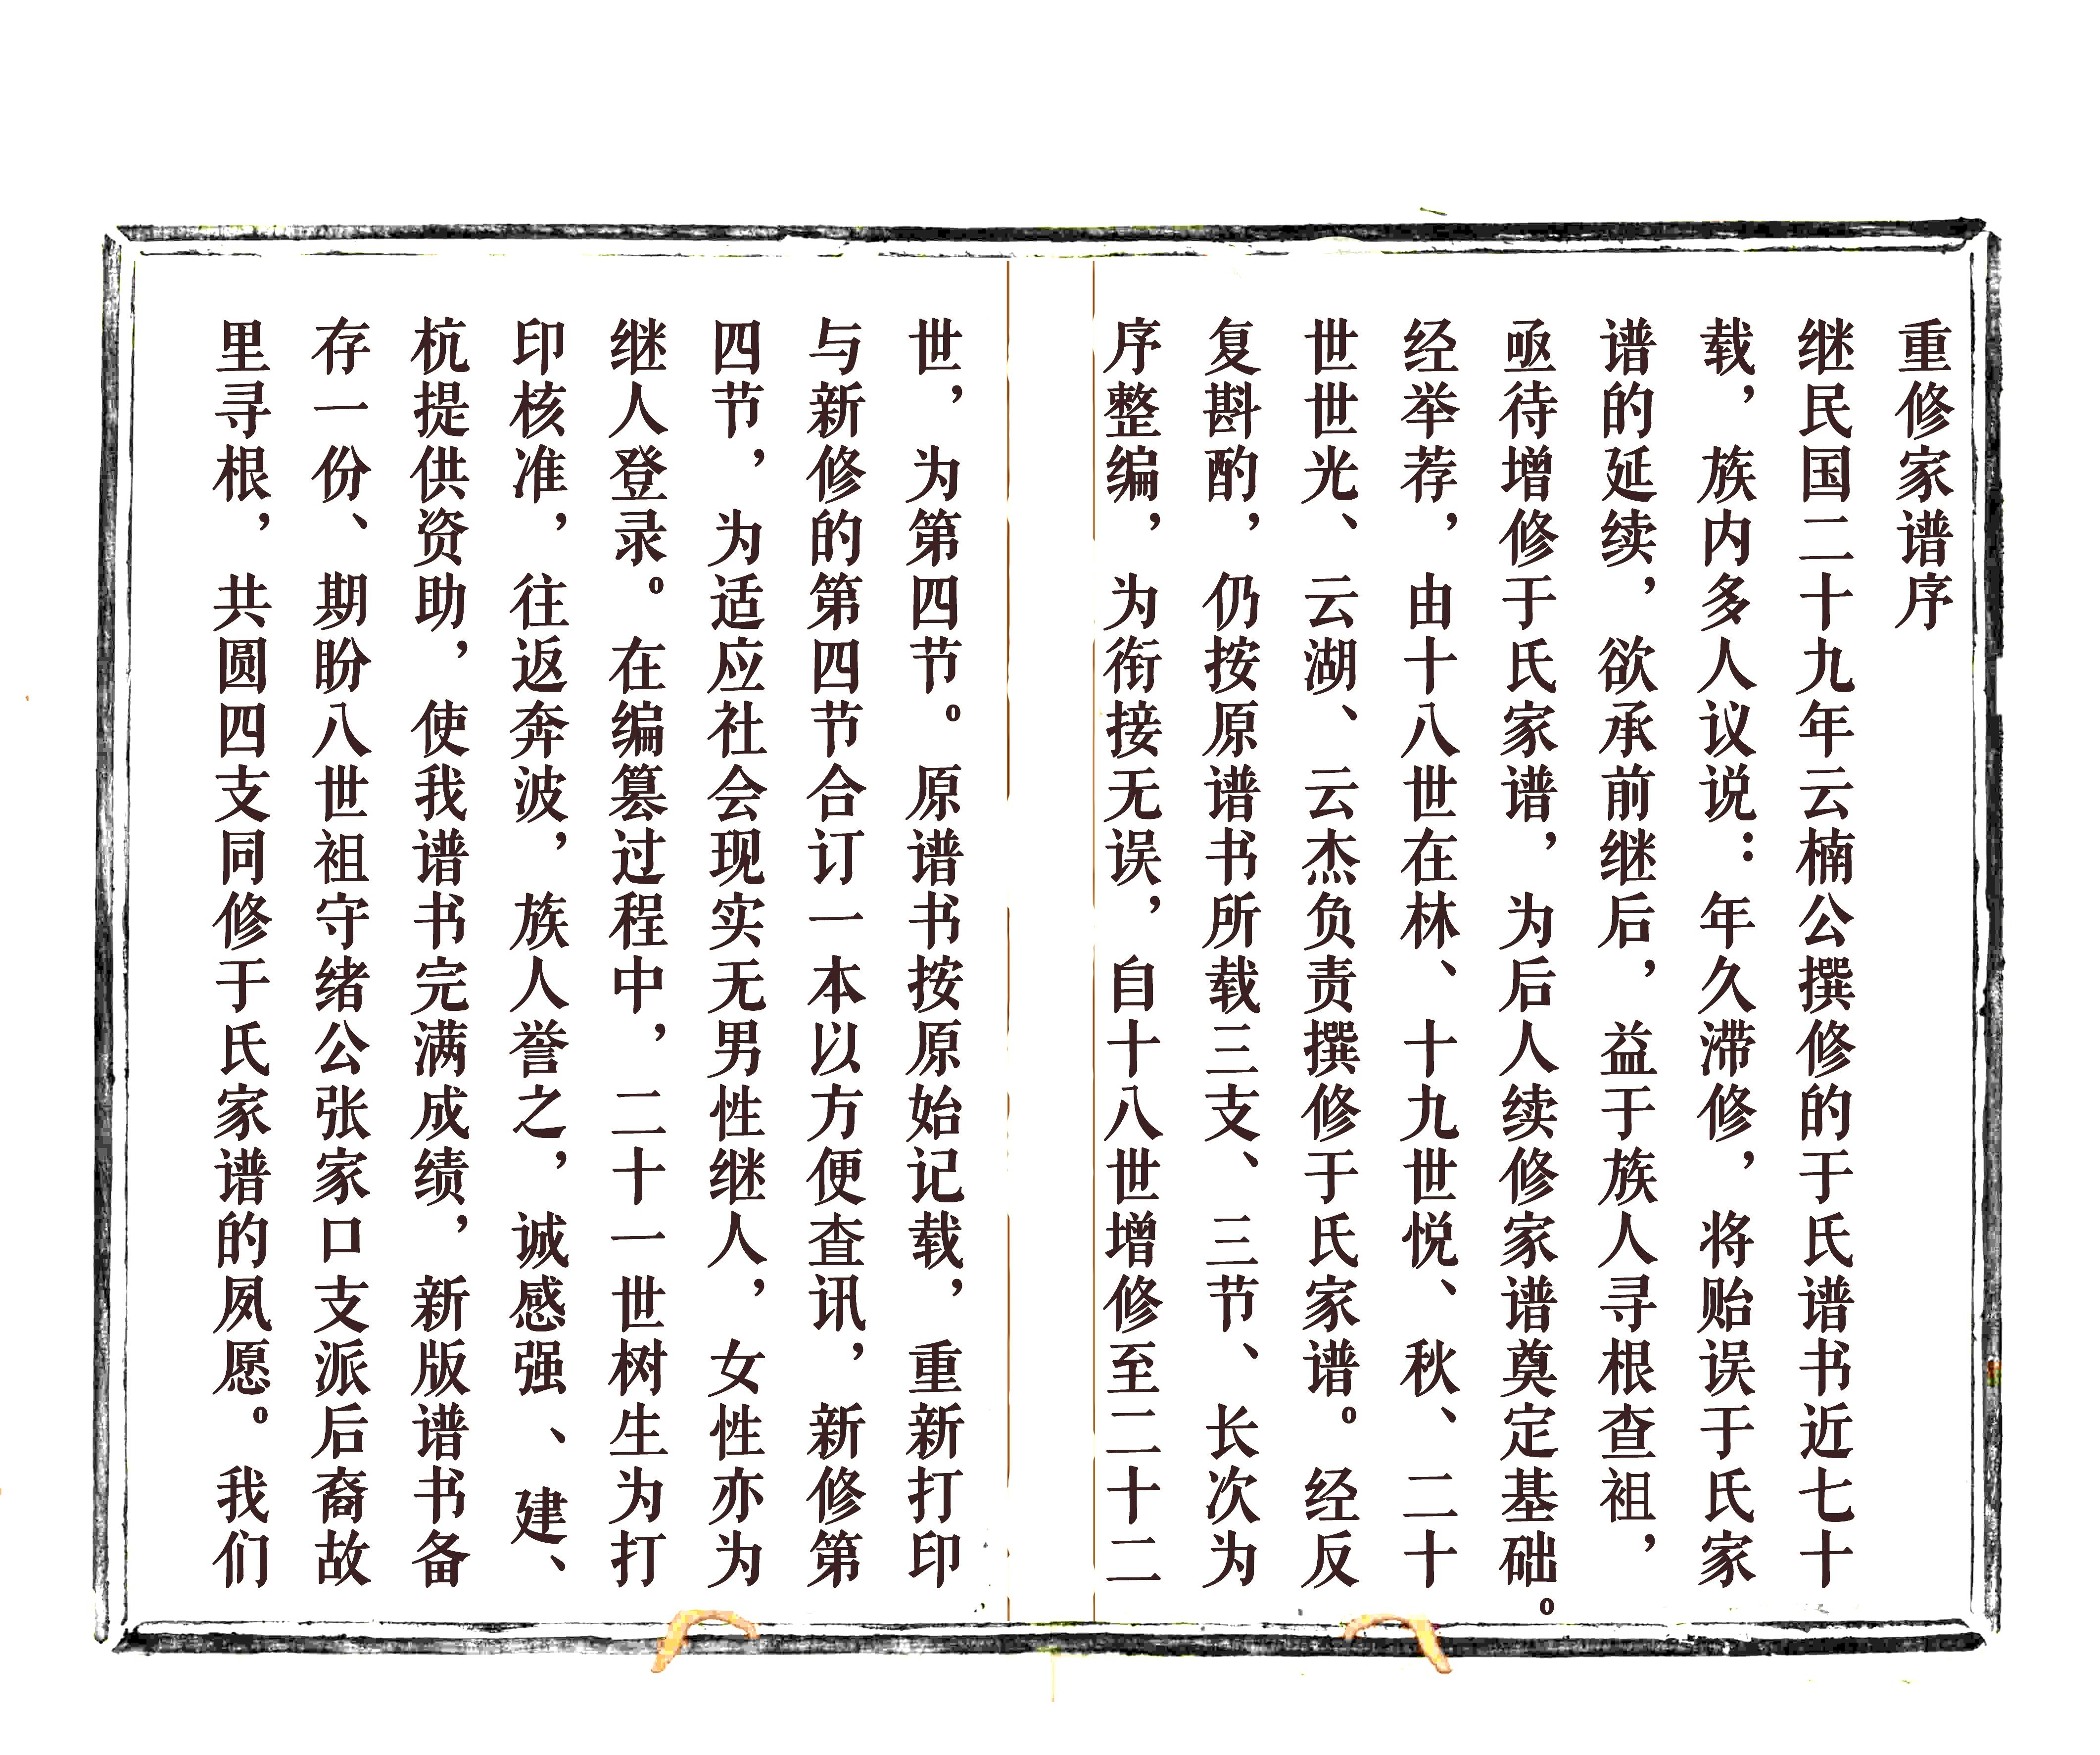 重修家谱序
继民国二十九年云楠公撰修的于氏谱书近七十
载，族内多人议说：年久滞修，将贻误于氏家
谱的延续，欲承前继后，益于族人寻根查祖，
亟待增修于氏家谱，为后人续修家谱奠定基础。
经举荐，由十八世在林、十九世悦、秋、二十
世世光、云湖、云杰负责撰修于氏家谱。经反
复斟酌，仍按原谱书所载三支、三节、长次为
序整编，为衔接无误，自十八世增修至二十二
世，为第四节。原谱书按原始记载，重新打印
与新修的第四节合订一本以方便查讯，新修第
四节，为适应社会现实无男性继人，女性亦为
继人登录。在编篡过程中，二十一世树生为打
印核准，往返奔波，族人誉之，诚感强、建、
杭提供资助，使我谱书完满成绩，新版谱书备
存一份、期盼八世祖守绪公张家口支派后裔故
里寻根，共圆四支同修于氏家谱的夙愿。我们